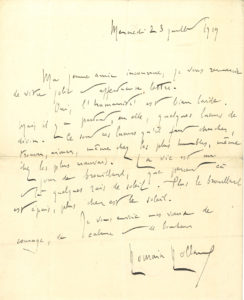 Mercredi 23 juillet 1919
Ma jeune amie inconnue, je vous remercie
de votre jolie et affectueuse lettre.
Oui, l'humanité est bien laide.
Mais il y a partout, en elle, quelques lueurs de
divin. Ce sont ces lueurs qu'il faut chercher,
trouver, aimer, même chez les plus humbles, même
chez les plus mauvais. La vie est un
jour de brouillard, que percent çà
et là quelques rais de soleil. Plus le brouillard
est épais, plus cher est le soleil.
Je vous envoie mes vœux de
courage, de calme et de bonheur
Romain Rolland